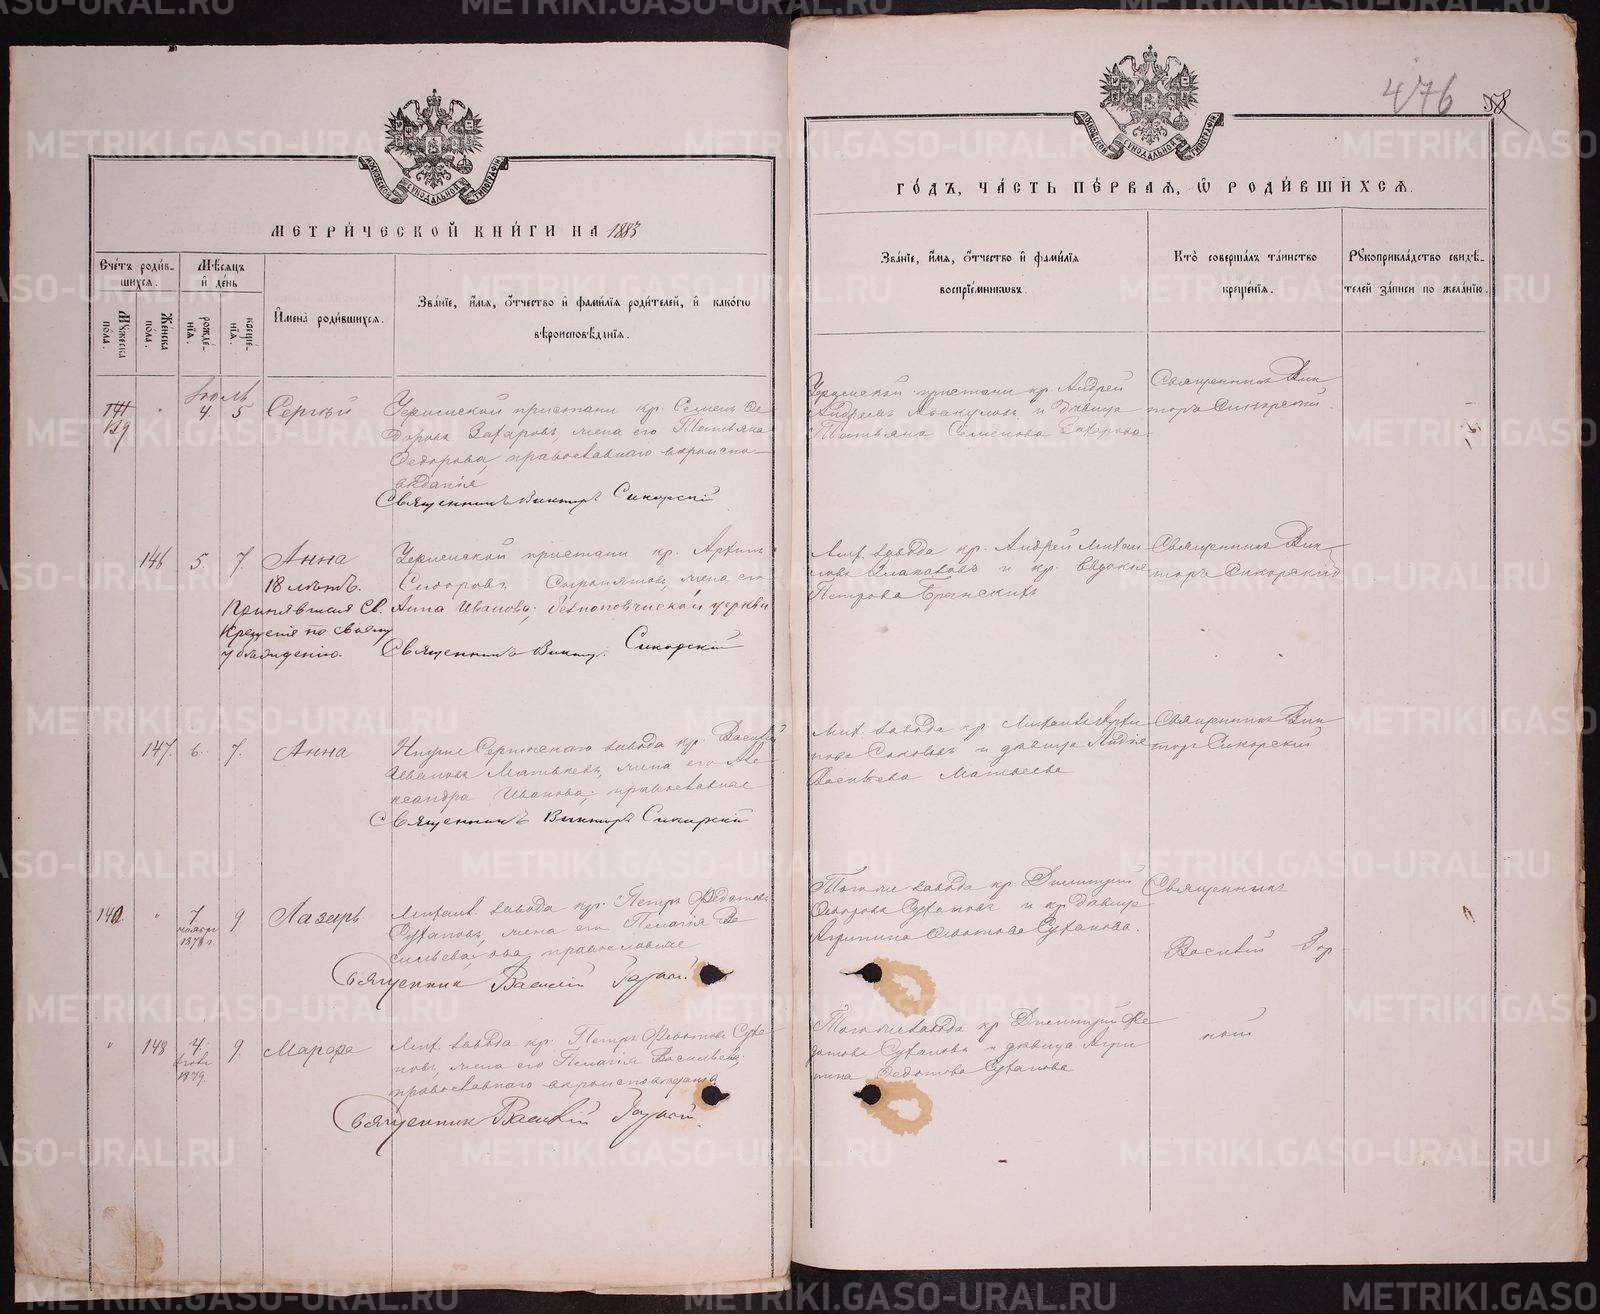 МЕТРИ́ЧЕСКОЙ КНИ́ГИ НА 1883
Счéтъ роди́в-
шихсѧ.
Мꙋ́жеска
пóла.
Жéнска
пóла.
Мѣ́сѧцъ
и҆ дéнь
рождé-
нїѧ.
крещé-
нїѧ.
И҆менà роди́вшихсѧ.
Звáнїе, и҆́мѧ, ѻ҆́тчество и҆ фами́лїѧ роди́телей, и҆ какóгѡ
вѣроисповѣ́данїѧ.
Іюль
141
139
"
4
5
Сергѣй
Уткинской пристани кр. Семенъ Ѳе
доровъ Захаровъ, жена его Татьяна
Ѳедорова, православнаго вѣроиспо-
вѣданія
Священникъ Викторъ Сикорскій
146
5.
7.
Анна
18 лѣтъ.
Принявшая Св.
Крещеніе по своему
убѣжденію.
пристани кр. Архипъ
Сидоровъ жена его
Анна Иванова, безпоповчиской церкви
Священникъ Виктор. Сикорскій
147.
6.
7.
Анна
Нижне Сергинскаго завода кр. Василій
Ивановъ Матвѣевъ, жена его Але
ксандра Иванова, православные
Священникъ Викторъ Сикорскій
140.
"
7.
ноября
1878 г.
9
Лазарь
Михаил. завода кр. Петръ Ѳедотовъ
Сухановъ, жена его Пелагія Ва
сильева, оба православные
Священник Василій
"
148
4.
1879.
9.
Марѳа
Мих. завода кр. Петръ Ѳедотовъ Суха
новъ, жена его Пелагія Васильева,
православнаго вѣроисповѣданія
Священник Василій
476
58
ГÓДЪ, ЧÁСТЬ ПÉРВАѦ, Ѽ РОДИ́ВШИХСѦ.
Звáнїе, и҆́мѧ, ѻ҆́тчество и҆ фами́лїѧ
воспрїéмникѡвъ.
Ктò совершáлъ тáинство
крещéнїѧ.
Рꙋкоприклáдство свидѣ́-
телей зáписи по желáнїю.
пристани кр. Андрей
Андреевъ Абакумовъ и дѣвица
Татьяна Семенова Захарова.
Священникъ Вик
торъ Сикорскій.
Мих. завода кр. Андрей Михаи
ловъ и кр. вдова
Петрова
Священникъ Вик
торъ Сикорскій
Мих. завода кр. Михаилъ Архи
повъ Соколовъ и дѣвица Лидія
Васильева Матвеева
Священникъ Вик
торъ Сикорскій
Того же завода кр. Димитрій
Ѳедоровъ Сухановъ и кр. дѣвица
Агрипина Ѳедотова Суханова.
Священникъ
Василій Гор-
Того же завода кр Димитрій Ѳе
доровъ Сухановъ и дѣвица Агри
пина Ѳедотова Суханова
ной
METRIKI.GASO-URAL.RU